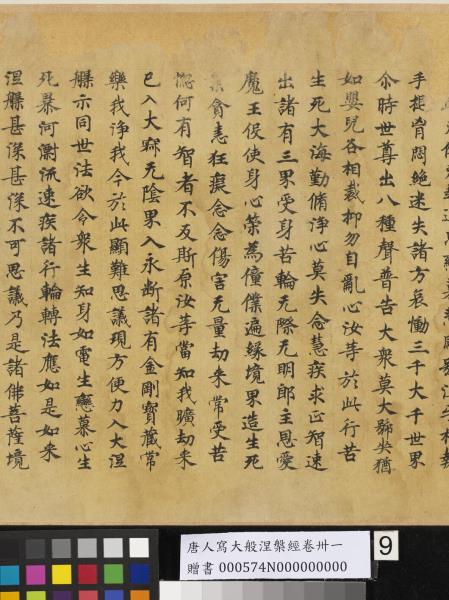 手搥胷悶絕迷失諸方哀慟三千大千世界
尒時世尊出八種聲普告大衆莫大號哭猶
如嬰兒各相裁抑勿自亂心汝等於此行苦
生死大海勤脩淨心莫失念慧疾求正智速
出諸有三界受身苦輪无際无明郎主恩愛
魔王役使身心策為僮僕遍緣境界造生死
業貪恚狂癡念念傷害无量劫来常受苦
惱何有智者不反斯原汝等當知我曠劫来
已入大寂无陰界入永斷諸有金剛寶藏常
樂我淨我今於此顯難思議現方便力入大涅
槃示同世法欲令衆生知身如電生戀慕心生
死暴河漂流速疾諸行輪轉法應如是如来
涅槃甚深甚深不可思議乃是諸佛菩薩境
唐人寫大般涅槃經卷卅一
贈書 000574N000000000
9